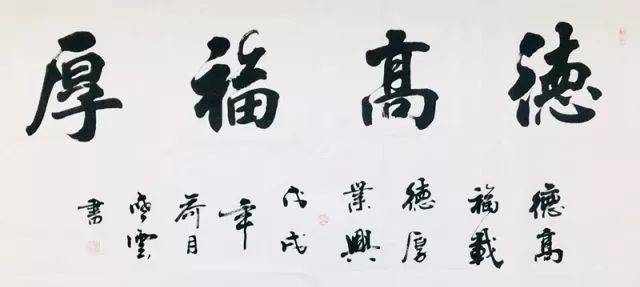 德高福厚
德高
福載
德厚
業興
戊戌
年
荷月
雲
書